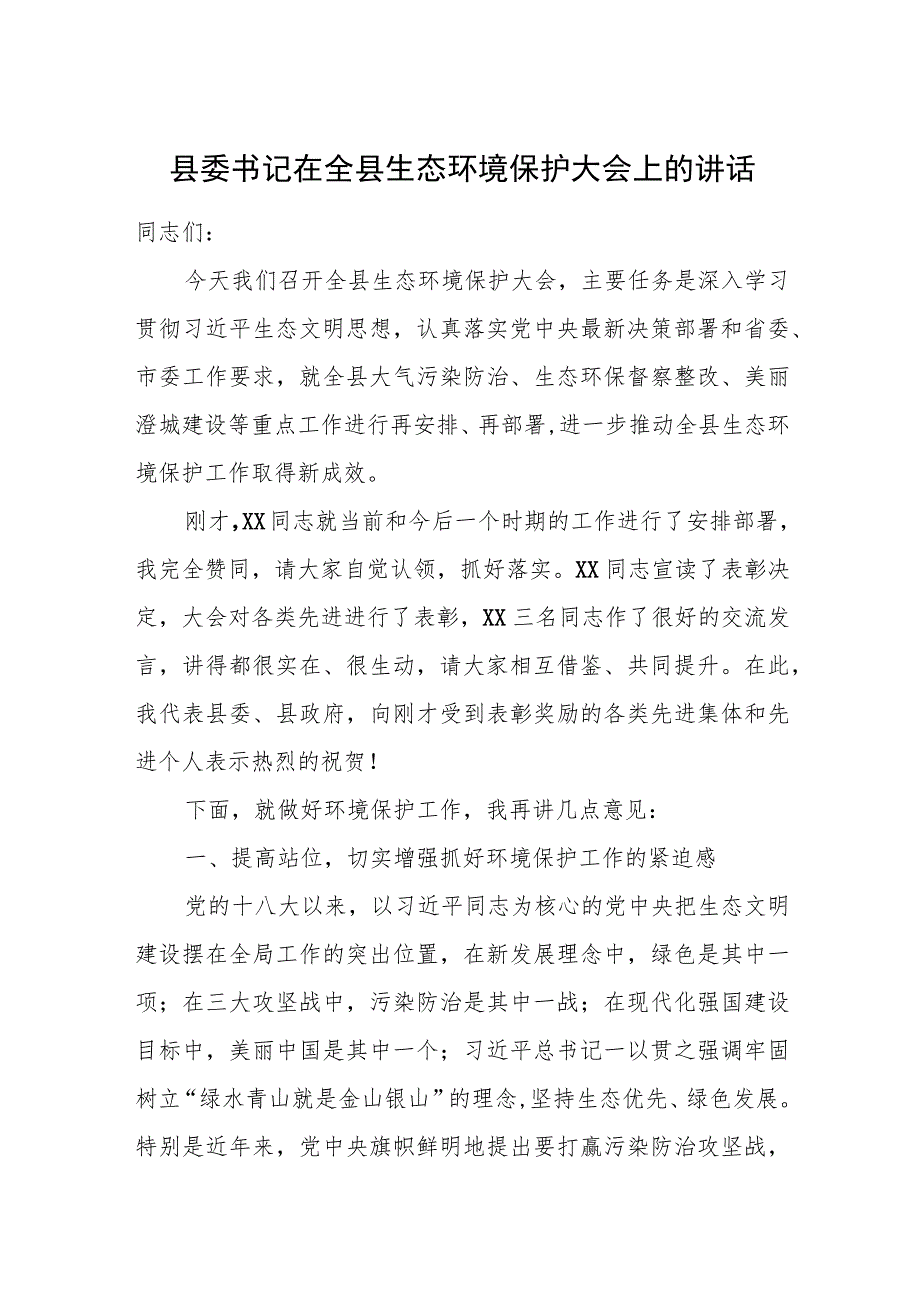 县委书记在全县生态环境保护大会上的讲话
同志们：
今天我们召开全县生态环境保护大会，主要任务是深入学习
贯彻习近平生态文明思想，认真落实党中央最新决策部署和省委、
市委工作要求，就全县大气污染防治、生态环保督察整改、美丽
澄城建设等重点工作进行再安排、再部署,进一步推动全县生态环
境保护工作取得新成效。
刚才,XX同志就当前和今后一个时期的工作进行了安排部署，
我完全赞同，请大家自觉认领，抓好落实。XX同志宣读了表彰决
定，大会对各类先进进行了表彰，XX三名同志作了很好的交流发
言，讲得都很实在、很生动，请大家相互借鉴、共同提升。在此，
我代表县委、县政府，向刚才受到表彰奖励的各类先进集体和先
进个人表示热烈的祝贺！
下面，就做好环境保护工作，我再讲几点意见：
一、提高站位，切实增强抓好环境保护工作的紧迫感
党的十八大以来，以习近平同志为核心的党中央把生态文明
建设摆在全局工作的突出位置，在新发展理念中，绿色是其中一
项；在三大攻坚战中，污染防治是其中一战；在现代化强国建设
目标中，美丽中国是其中一个；习近平总书记一以贯之强调牢固
树立“绿水青山就是金山银山”的理念,坚持生态优先、绿色发展。
特别是近年来，党中央旗帜鲜明地提出要打赢污染防治攻坚战，